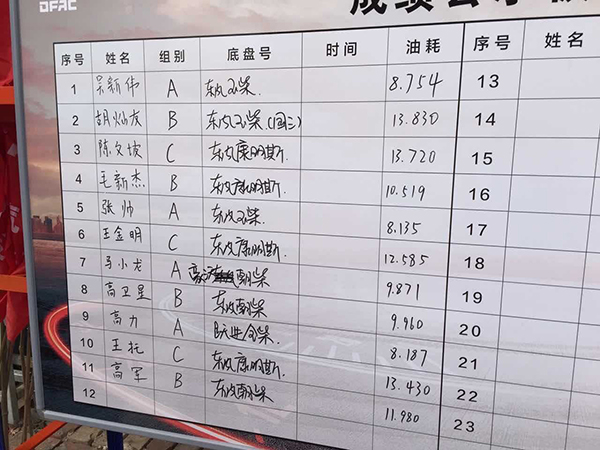 DFAC
成绩公示板
序号 姓名 组别 底盘号 时间 油耗 序号 姓名
1 吴新伟 A 东风玉柴. 8.754 13
2 胡灿友 B 东风玉柴(国三) 13.830 14
3 陈文坡 C 东风康明斯. 13.720 15
4 毛新杰 B 东风康明斯. 10.519 16
5 张帅 A 东风玉柴. 8.135 17
6 王金明 C 东风康明斯. 12.585 18
7 马小龙 A 朝柴 9.871 19
8 高卫星 B 东风朝柴 9.960 20
9 高力 A 跃进全柴. 8.187 21
10 王托 C 东风康明斯. 13.430 22
11 高军 B 东风朝柴 11.980 23
12